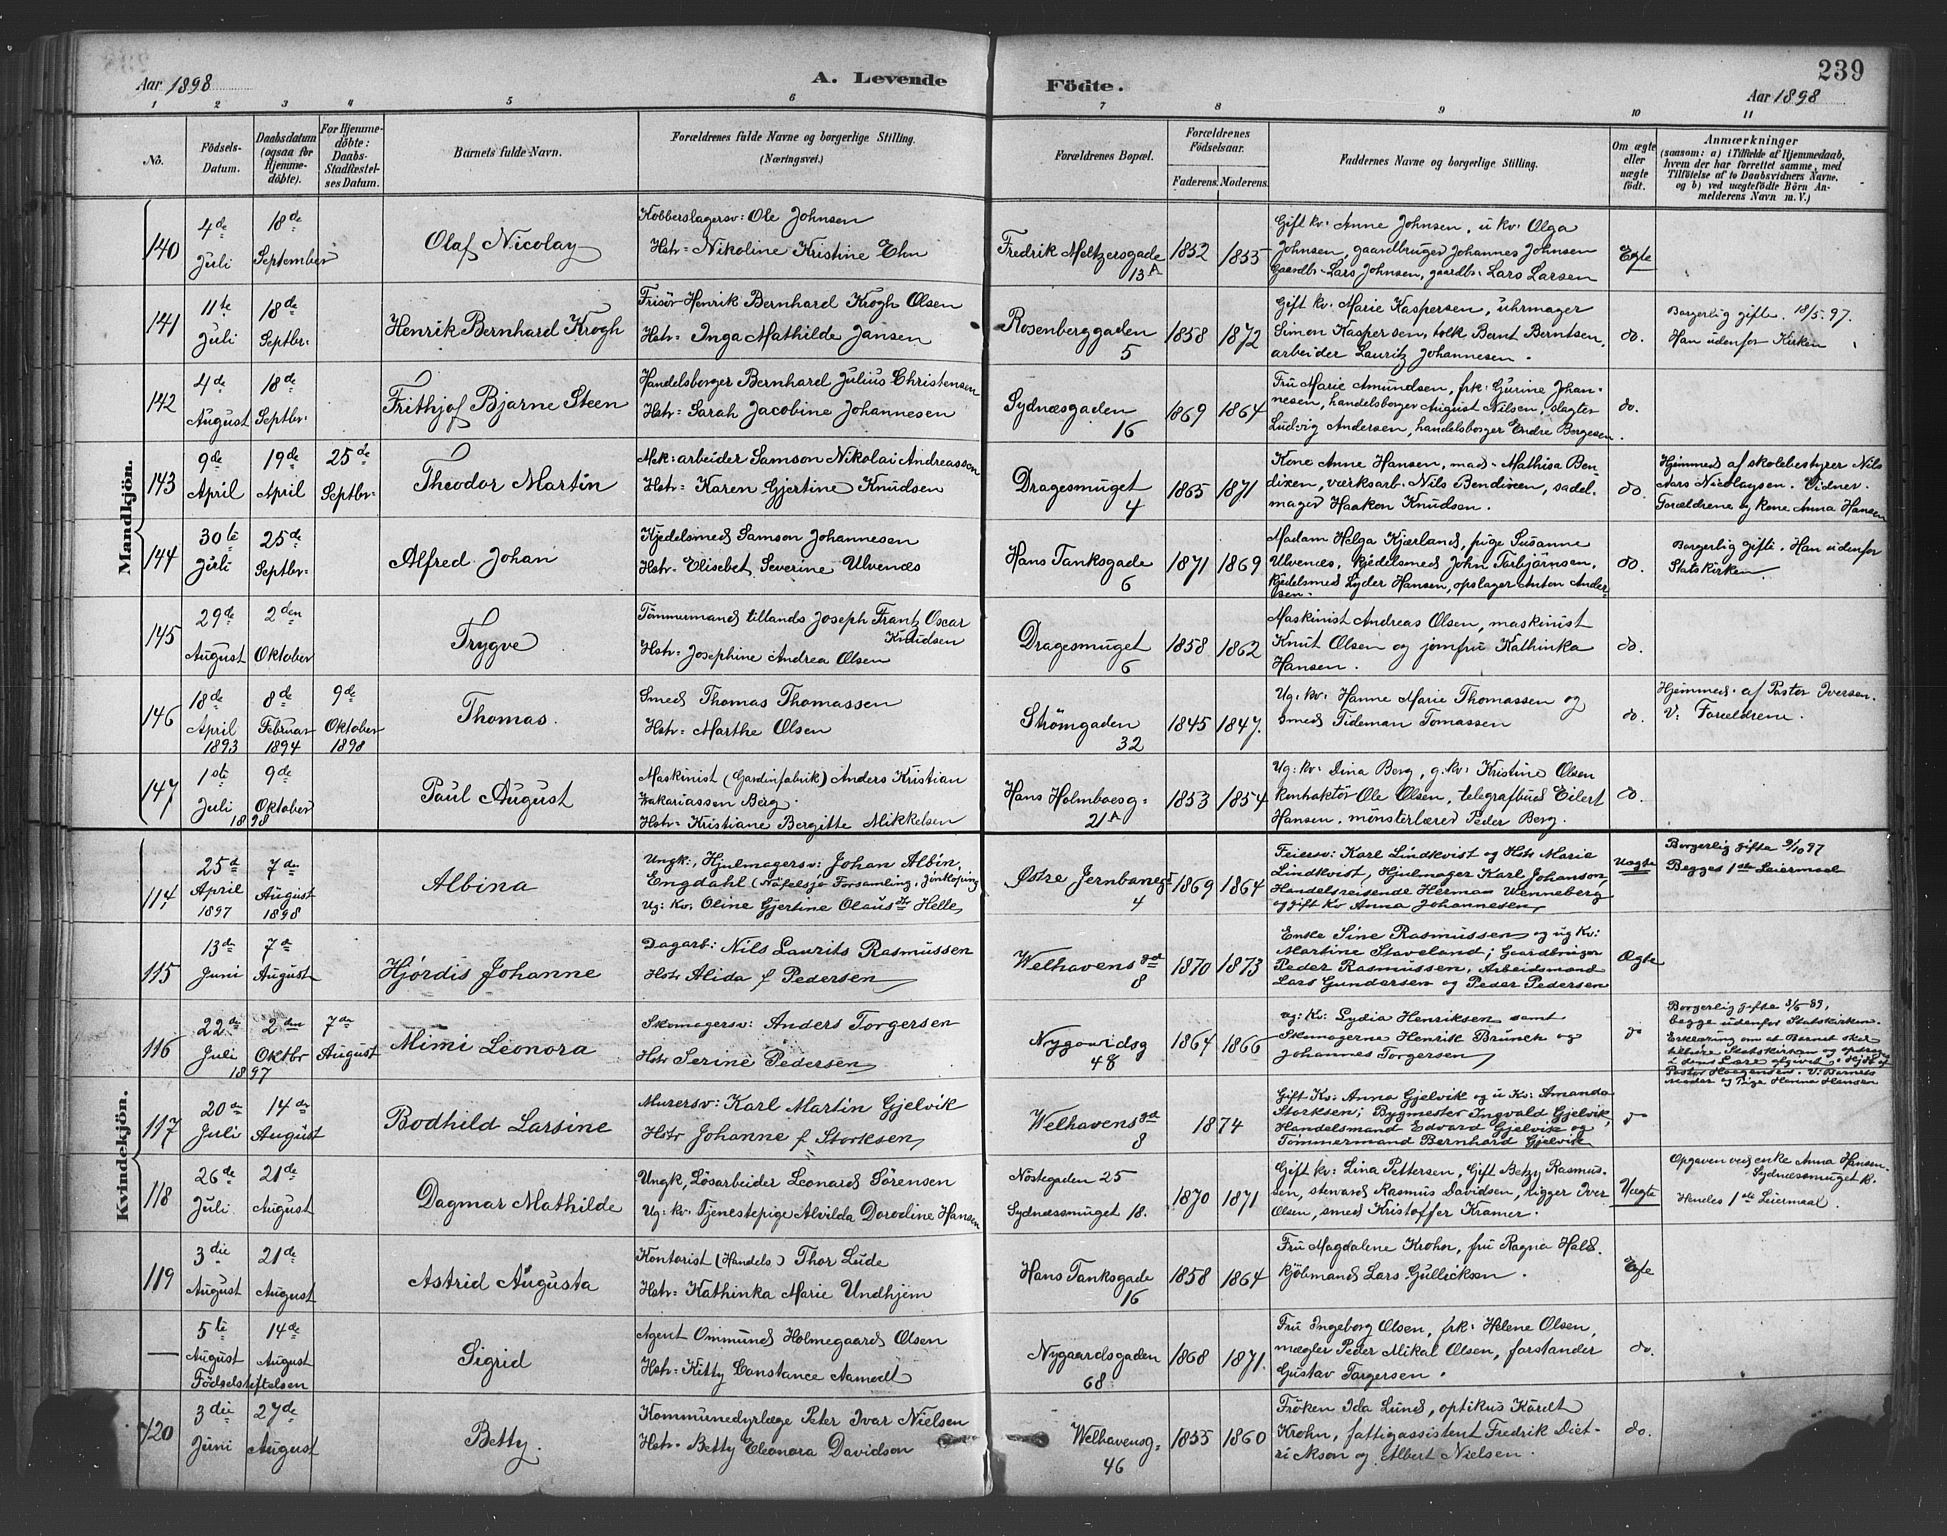 239
Aar 1898
A. Levende
Födte.
Aar 1898
1 2 3 4 5 6 7 8 9 10 11
No.
Födsels-
Datum.
Daabsdatum
(ogsaa for
Hjemme-
döbte).
For Hjemme-
döbte:
Daabs-
Stadfæstel-
ses Datum.
Barnets fulde Navn.
Forældrenes fulde Navne og borgerlige Stilling.
(Næringsvei.)
Forældrenes Bopæl.
Forældrenes
Födselsaar.
Faderens. Moderens.
Faddernes Navne og borgerlige Stilling.
Om ægte
eller
uægte
födt.
Anmærkninger
(saasom: a) i Tilfælde af Hjemmedaab,
hvem der har forrettet samme, med
Tilföielse af to Daabsvidners Navne,
og b) ved uægtefödte Börn An-
melderens Navn m. V.)
Mandkjön.
140
4de
Juli
18de
September
Olaf Nicolay
Kobberslagersv: Ole Johnsen
Hstr= Nikoline Kristine Ehn
Fredrik Meltzersgade
13A
1852
1855
Gift kv: Anne Johnsen, u kv: Olga
Johnsen, gaardbruger Johannes Johnsen
Gaardb= Lars Johnsen, gaardb= Lars Larsen
Egte
141
11te
Juli
18de
Septbr=
Henrik Bernhard Krogh
Frisör Henrik Bernhard Krogh Olsen
Hstr= Inga Mathilde Jansen
Rosenberggaden
5
1858
1872
Gift kv. Marie Kaspersen, uhrmager
Simon Kaspersen, tolk Bernt Berntsen,
arbeider Lauritz Johannesen.
do.
Borgerlig gifte. 18/5. 97.
Han udenfor Kirken
142
4de
August
18de
Septbr=
Frithjof Bjarne Steen
Handelsborger Bernhard Julius Christensen
Hstr= Sarah Jacobine Johannesen
Sydnæsgaden
16
1869
1864
Fru Marie Amundsen, frk: Gurine Johan-
nesen, handelsborger August Nilsen, slagter
Ludvig Andersen, handelsborger Endre Borgesen.
do.
143
9de
April
19de
April
25de
Septbr=
Theodor Martin
Mek: arbeider Samson Nikolai Andreassen
Hstr= Karen Gjertine Knudsen
Dragesmuget
4
1865
1871
Kone Anne Hansen, mad= Mathisa Ben-
dixen, værksarb. Nils Bendixen, sadel-
mager Haakon Knudsen.
do.
Hjemmed af skolebestyrer Nils
Aars Nicolaysen. Vidner.
Forældrene og kone Anna Hansen
144
30te
Juli
25de
Septbr=
Alfred Johan
Kjedelsmed Samson Johannesen
Hstr= Elisebet Severine Ulvenæs
Hans Tanksgade
6
1871
1869
Madam Helga Kjærland, pige Susanne
Ulvenæs, kjedelsmed John Torbjörnsen,
kjedelsmed Lyder Hansen, opslager Anton Ander-
sen.
do.
Borgerlig gifte. Han udenfor
Statskirken.
145
29de
August
2den
Oktober
Trygve
Tömmermand tillands Joseph Frantz Oscar
Knudsen
Hstr= Josephine Andrea Olsen
Dragesmuget
6
1858
1862
Maskinist Andreas Olsen, maskinist
Knut Olsen og jomfru Kathinka
Hansen.
do.
146
18de
April
1893
8de
Februar
1894
9de
Oktober
1898
Thomas.
Smed Thomas Thomassen
Hstr= Marthe Olsen
Strömgaden
32
1845
1847.
Ug: kv: Hanne Marie Thomassen og
smed Tideman Tomassen
do.
Hjemmed. af Pastor Iversen.
V: Forældrene.
147
1ste
Juli
9de
Oktober
1898
Paul August
Maskinist (Gardinfabrik) Anders Kristian
Zakariassen Berg.
Hstr= Kristiane Bergitte Mikkelsen
Hans Holmboesg=
21A
1853
1854
Ug: kv: Dina Berg, g: kv: Kristine Olsen
kontraktör Ole Olsen, telegrafbud Eilert
Hansen, mönsterlærer Peder Berg.
do.
Kvindekjön.
114
25d
April
1897
7de
August
1898
Albina
Ungk:, Hjulmagersv: Johan Albin
Engdahl (Näfelsjö Forsamling, Jönköping
Ug: Kv: Oline Gjertine Olausdtr Helle
Östre Jernbaneg
4
1869
1864
Feiersv: Karl Lindkvist og Hstr Marie
Lindkvist, Hjulmager Karl Johanson,
Handelsreisende Herman Wenneberg
og gift Kv Anna Johannesen
Uægte
Borgerlig gifte 9/10 97
Begges 1ste Leiermaal
115
13de
Juni
7de
August
Hjördis Johanne
Dagarb: Nils Laurits Rasmussen
Hstr Alida f Pedersen
Welhavensgd
8
1870
1873
Enke Sine Rasmussen og ug Kv:
Martine Staveland; Gaardbruger
Peder Rasmussen, Arbeidsmand
Lars Gundersen og Peder Pedersen
Ægte
116
22de
Juli
2den
Oktbr
1897
7de
August
Mimi Leonora
Skomagersv: Anders Torgersen
Hstr Serine Pedersen
Nygaardsg
48
1864
1866
ug: Kv: Lydia Henriksen samt
Skomagerne Henrik Brunck og
Johannes Torgersen
do
Borgerlig gifte 3/5 89,
begge udenfor Statskirken.
Erklæring om at Barnet skal
tilhöre Statskirken og opdrages
i dens Lære afgivet. Hjdb af
Pastor Haagensen. V: Barnets
Moder og Pige Hanna Hansen
117
20de
Juli
14de
August
Bodhild Larsine
Murersv: Karl Martin Gjelvik
Hstr Johanne f Storksen
Welhavensgd
8
1874
Gift Kv: Anna Gjelvik og u Kv: Amanda
Storksen; Bygmester Ingvald Gjelvik,
Handelsmand Edvard Gjelvik og
Tömmermand Bernhard Gjelvik
do
118
26de
Juli
21de
August
Dagmar Mathilde
Ungk, Lösarbeider Leonard Sörensen
Ug: kv: Tjenestepige Alvilda Dorodine Hansen
Nöstegaden 25
Sydnæssmuget 18.
1870
1871
Gift kv: Lina Pettersen, Gift Betzy Rasmus-
sen, steward Rasmus Davidsen, rigger Iver
Olsen, smed Kristoffer Kramer.
Uægte
Opgaven ved enke Anna Hansen.
Sydnæssmuget 18.
Hendes 1ste Leiermaal.
119
3die
August
21de
August
Astrid Augusta
Kontorist (Handels) Thor Lude
Hstr= Kathinka Marie Undhjem
Hans Tanksgade
16
1858
1864
Fru Magdalene Krohn, fru Ragna Hald.
kjöbmand Lars Gullicksen.
Egte
5te
August
14de
August
Födselstiftelsen
Sigrid
Agent Ommund Holmegaard Olsen
Hstr= Kitty Constance Aamodt
Nygaardsgaden
68
1868
1871.
Fru Ingeborg Olsen, frk: Helene Olsen,
mægler Peder Mikal Olsen, forstander
Gustav Torgersen.
do.
120
3die
Juni
27de
August
Betty.
Kommunedyrlæge Peter Ivar Nielsen
Hstr= Betty Eleonora Davidson
Welhavensg=
46
1855
1860
Fröken Ida Lund, optikus Kardt
Krohn, fattigassistent Fredrik Diet-
rickson og Albert Nielsen.
do.